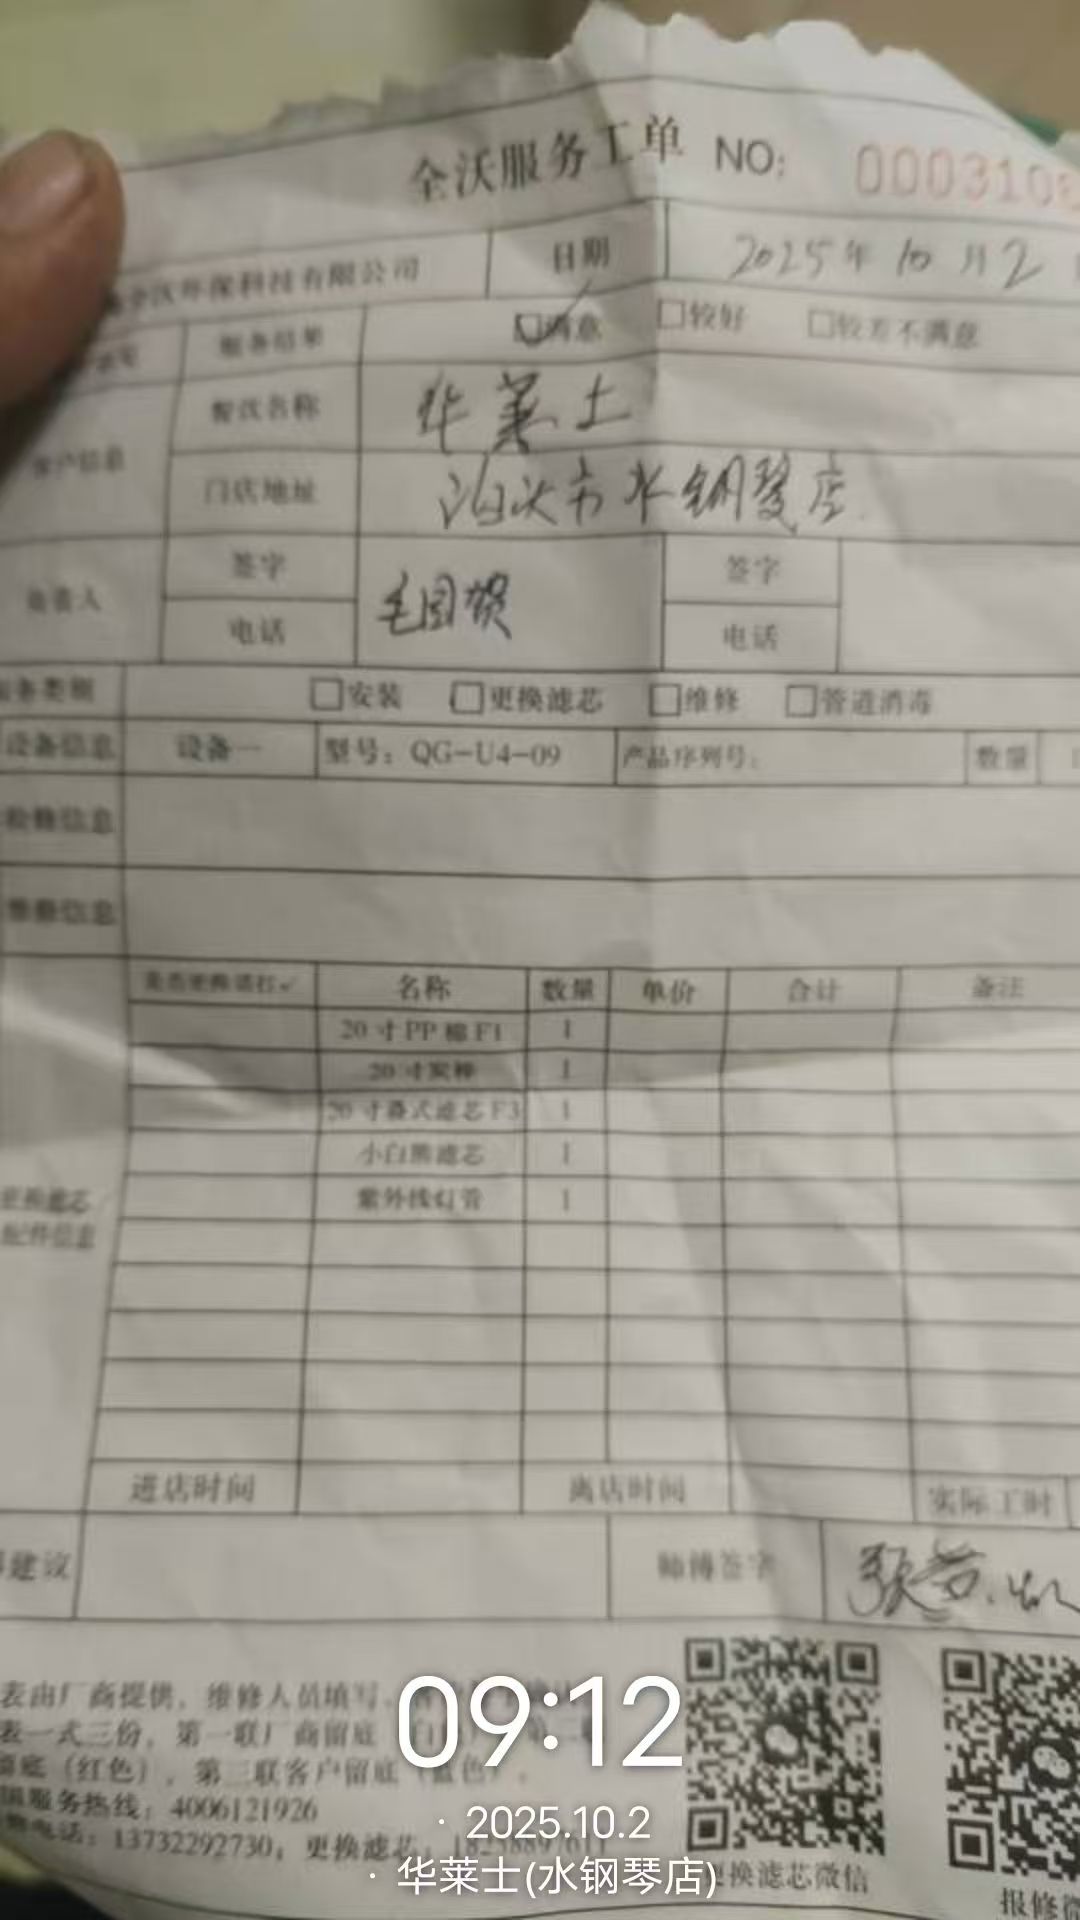 全沃服务工单 NO: 000310
全沃环保科技有限公司 日期 2025年10月2
服务结果 ☑满意 □较好 □较差不满意
客户信息 餐饮名称 华莱士
门店地址 泊头市水钢琴店
负责人 签字 毛国贺 签字
电话 电话
服务类别 □安装 □更换滤芯 □维修 □管道消毒
设备信息 设备一 型号：QG-U4-09 产品序列号： 数量
检修信息
维修信息
是否更换请打✓ 名称 数量 单价 合计 备注
20寸PP棉F1 1
20寸炭棒 1
20寸叠式滤芯F3 1
小白熊滤芯 1
紫外线灯管 1
更换滤芯
配件信息
进店时间 离店时间 实际工时
建议 师傅签字
表由厂商提供，维修人员填写
表一式三份，第一联厂商留底
留底（红色），第三联客户留底（蓝色）.
国服务热线：4006121926
电话：13732292730；更换滤芯
更换滤芯微信
报修微
09:12
· 2025.10.2
· 华莱士(水钢琴店)